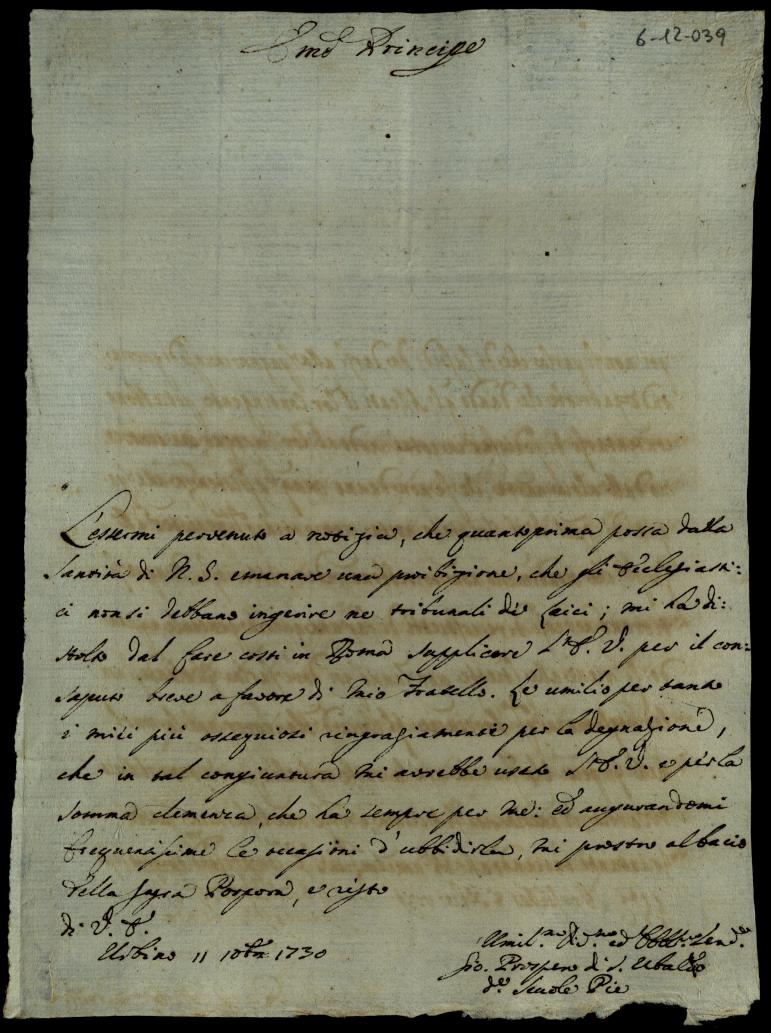 6-12-039
Em.o Principe
L'essermi pervenuto a notizia, che quanto prima possa dalla
Santità di N. S. emanare una proibizione, che gli Ecclesiasti:
ci non si debbano ingerire ne tribunali di Laici; mi ha di:
stolto dal fare costì in Roma supplicare l'E. V. per il con:
saputo breve a favore di mio Fratello. Le umilio per tanto
i miei più ossequiosi ringraziamenti per la degnazione,
che in tal congiuntura mi avrebbe usato l'E. V. e per la
somma clemenza, che ha sempre per me: ed augurandomi
frequentissime le occasioni d'ubbidirla, mi prostro al bacio
della Sagra Porpora, e resto
di V. E.
Urbino 11 10bre 1730
Umil.mo D.mo ed Obb.
Gio. Prospero di S. Ubaldo
d.e Scuole Pie